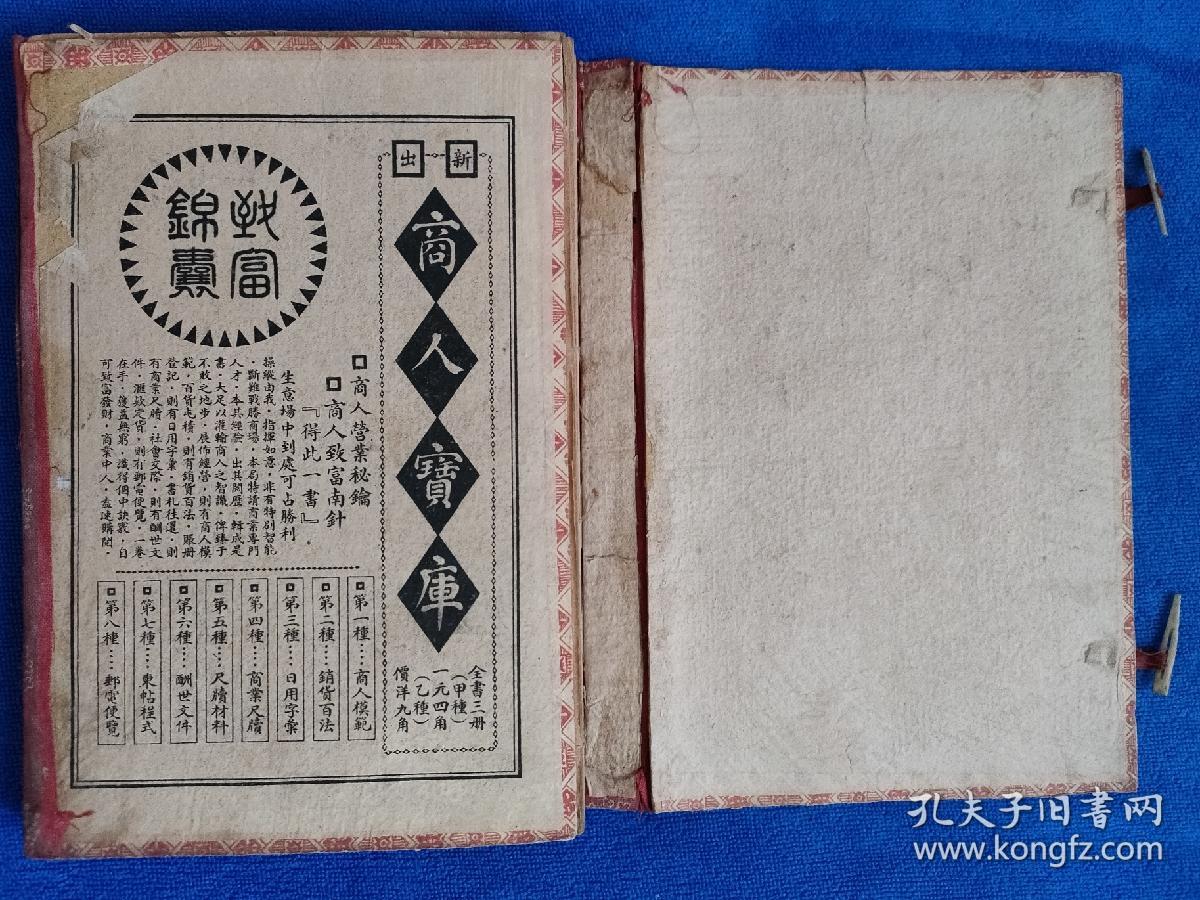 新出
商人寶庫
全書三册
（甲種）
一元四角
（乙種）
價洋九角
致富
錦囊
商人營業秘鑰
商人致富南針
『得此一書』．
生意場中到處可占勝利
操縱由我．指揮如意．非有特別智能
．斷難戰勝商場．本局特請商業專門
人才．本其經驗．出其閱歷．輯成是
書．大足以灌輸商人之智識．俾臻于
不敗之地步．展佈經營．則有商人模
範．百貨屯積．則有銷貨百法．賬册
登記．則有日用字彙．書札往還．則
有商業尺牘．社會交際．則有酬世文
件．滙欵定貨．則有郵電便覽．一卷
在手．獲益無窮．識得個中訣竅．自
可致富發財．商業中人．盍速購閱．
第一種‥‥商人模範
第二種‥‥銷貨百法
第三種‥‥日用字彙
第四種‥‥商業尺牘
第五種‥‥尺牘材料
第六種‥‥酬世文件
第七種‥‥柬帖程式
第八種‥‥郵電便覽
孔夫子旧书网
www.kongfz.com